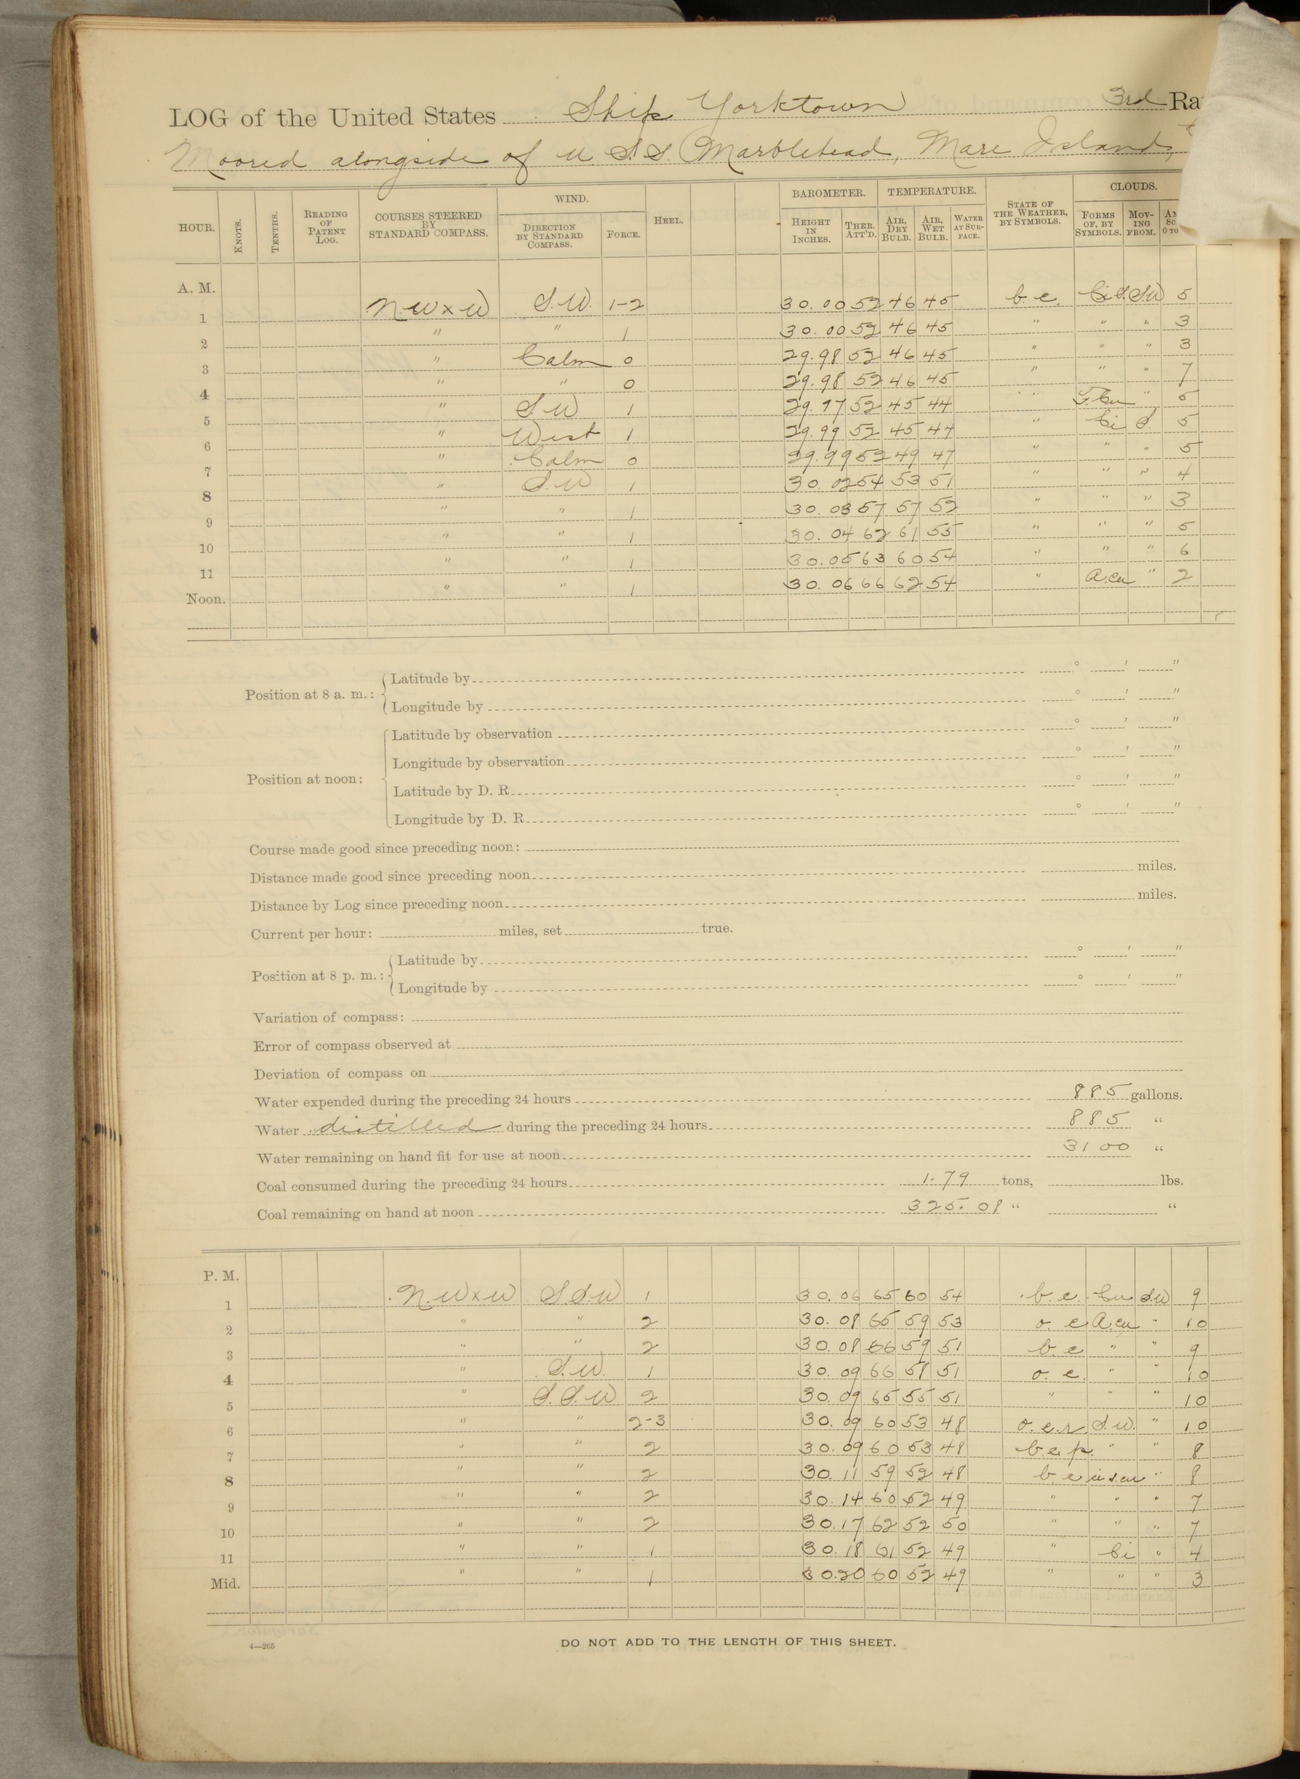 LOG of the United States Ship Yorktown 3rd Ra
Moored alongside of U.S.S. Marblehead, Mare Island,
HOUR. KNOTS. TENTHS. READING OF PATENT LOG. COURSES STEERED BY STANDARD COMPASS. WIND. DIRECTION BY STANDARD COMPASS. FORCE. HEEL. BAROMETER. HEIGHT IN INCHES. THER. ATT'D. TEMPERATURE. AIR, DRY BULB. AIR, WET BULB. WATER AT SURFACE. STATE OF THE WEATHER, BY SYMBOLS. CLOUDS. FORMS OF, BY SYMBOLS. MOVING FROM.
A. M.
1 N.W x W S.W. 1-2 30.00 52 46 45 b.c. Ci.S. SW 5
2 " " 1 30.00 52 46 45 " " " 3
3 " Calm 0 29.98 52 46 45 " " " 3
4 " " 0 29.98 52 46 45 " " " 7
5 " S.W 1 29.97 52 45 44 " " 5
6 " West 1 29.99 52 45 44 " Ci S. 5
7 " Calm 0 29.99 52 49 47 " " " 5
8 " S.W 1 30.02 54 53 51 " " " 4
9 " " 1 30.03 57 57 52 " " " 3
10 " " 1 30.04 62 61 55 " " " 5
11 " " 1 30.05 63 60 54 " " " 6
Noon. " " 1 30.06 66 62 54 " A.cu " 2
Position at 8 a. m.: Latitude by ° ' "
Longitude by ° ' "
Position at noon: Latitude by observation ° ' "
Longitude by observation ° ' "
Latitude by D. R. ° ' "
Longitude by D. R. ° ' "
Course made good since preceding noon:
Distance made good since preceding noon miles.
Distance by Log since preceding noon miles.
Current per hour: miles, set true.
Position at 8 p. m.: Latitude by ° ' "
Longitude by ° ' "
Variation of compass:
Error of compass observed at
Deviation of compass on
Water expended during the preceding 24 hours 885 gallons.
Water distilled during the preceding 24 hours 885 "
Water remaining on hand fit for use at noon 3100 "
Coal consumed during the preceding 24 hours 1.79 tons, lbs.
Coal remaining on hand at noon 325.08 " "
P. M.
1 N.W x W S S W 1 30.06 65 60 54 b.c. Cu S.W 9
2 " " 2 30.08 65 59 53 o.c A.cu " 10
3 " " 2 30.08 66 59 51 b.c " " 9
4 " S.W. 1 30.09 66 57 51 o.c. " " 10
5 " S.S.W 2 30.09 65 55 51 " " " 10
6 " " 2-3 30.09 60 53 48 o.c.r " 10
7 " " 2 30.09 60 53 48 b.c.p. " " 8
8 " " 2 30.11 59 52 48 b c " 8
9 " " 2 30.14 60 52 49 " " " 7
10 " " 2 30.17 62 52 50 " " " 7
11 " " 1 30.18 61 52 49 " Ci " 4
Mid. " " 1 30.20 60 52 49 " " " 3
4—265
DO NOT ADD TO THE LENGTH OF THIS SHEET.